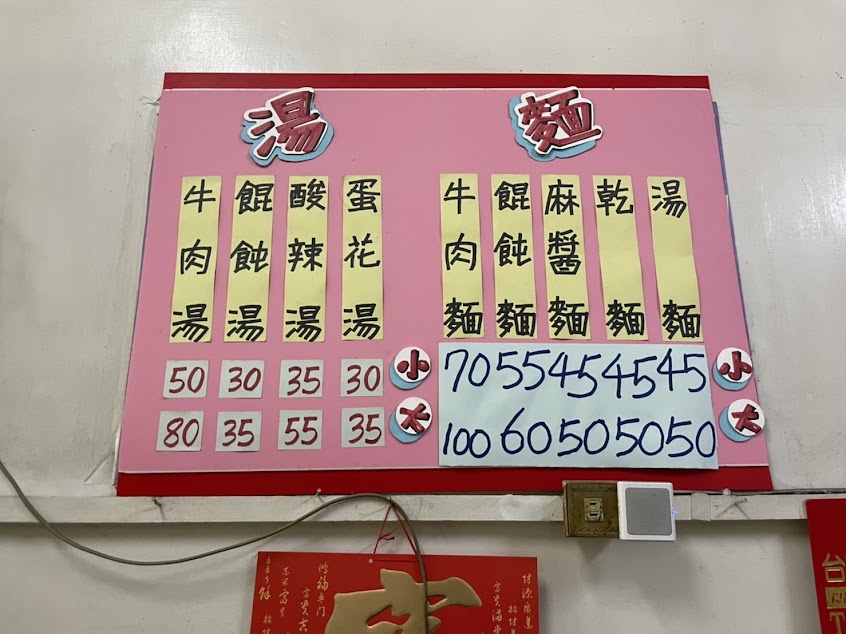 麵
湯麵
乾麵
麻醬麵
餛飩麵
牛肉麵
小 70 55 45 45 45
大 100 60 50 50 50
湯
蛋花湯
酸辣湯
餛飩湯
牛肉湯
小 50 30 35 30
大 80 35 55 35
台